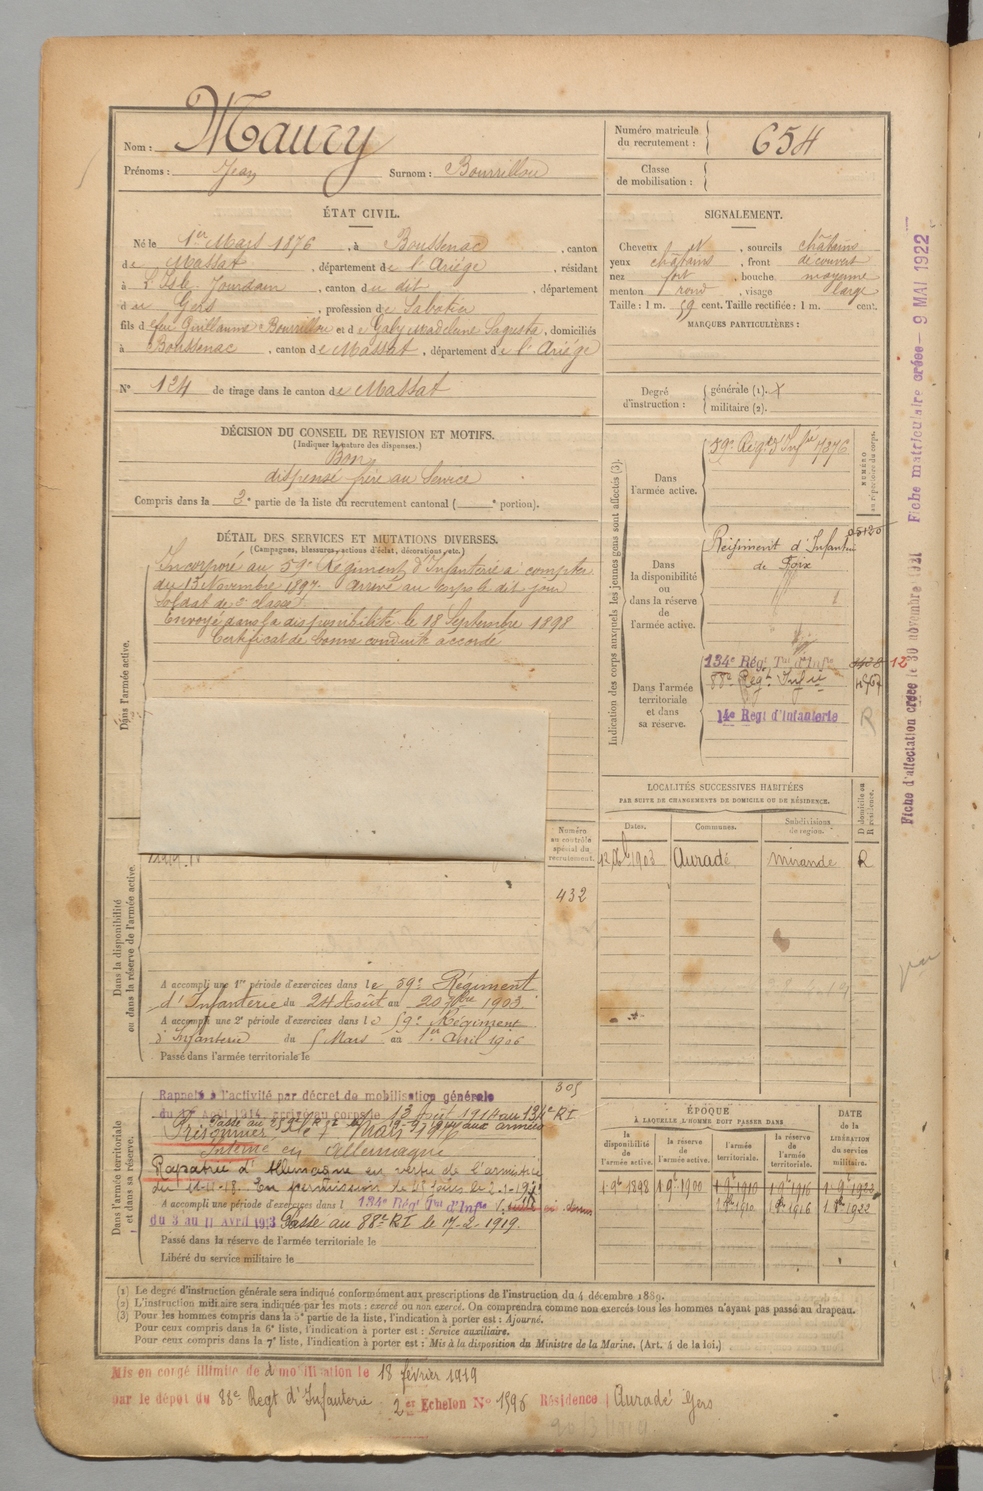 Nom : Maury
Prénoms : Jean Surnom : Bourrillou
Numéro matricule du recrutement : 654
Classe de mobilisation :
ÉTAT CIVIL.
Né le 1er Mars 1876, à Boussenac, canton
de Massat, département de l'Ariège, résidant
à L'Isle Jourdain, canton du dit, département
du Gers, profession de Sabotier
fils de feu Guillaume Bourrillou et de Galy Madeleine Lagusta, domiciliés
à Boussenac, canton de Massat, département de l'Ariège
N° 124 de tirage dans le canton de Massat
SIGNALEMENT.
Cheveux et, sourcils châtains
yeux châtains, front découvert
nez fort, bouche moyenne
menton rond, visage large
Taille : 1 m. 59 cent. Taille rectifiée : 1 m. cent.
MARQUES PARTICULIÈRES :
Degré d'instruction : générale (1). militaire (2).
DÉCISION DU CONSEIL DE REVISION ET MOTIFS.
(Indiquer la nature des dispenses.)
Bon
dispensé frère au Service
Compris dans la 3e partie de la liste du recrutement cantonal ( e portion).
DÉTAIL DES SERVICES ET MUTATIONS DIVERSES.
(Campagnes, blessures, actions d'éclat, décorations, etc.)
Dans l'armée active.
Incorporé au 59e Régiment d'Infanterie à compter
du 15 Novembre 1897. Arrivé au corps le dit jour
Soldat de 2e classe
Envoyé dans la disponibilité le 18 Septembre 1898
Certificat de bonne conduite accordé
Indication des corps auxquels les jeunes gens sont affectés (3).
NUMÉRO au répertoire du corps.
Dans l'armée active.
59e Régt d'Infie 7376
Dans la disponibilité ou dans la réserve de l'armée active.
Régiment d'Infanterie
de Foix
05120
Dans l'armée territoriale et dans sa réserve.
134e Régt Tal d'Infie
12
88e Régt Infie
14e Regt d'Infanterie
R
LOCALITÉS SUCCESSIVES HABITÉES
PAR SUITE DE CHANGEMENTS DE DOMICILE OU DE RÉSIDENCE.
Dates. Communes. Subdivisions de région. D domicile ou R résidence.
1903 Auradé Mirande R
Numéro au contrôle spécial du recrutement.
432
Dans la disponibilité ou dans la réserve de l'armée active.
A accompli une 1re période d'exercices dans le 59e Régiment
d'Infanterie du 24 Août au 20 7bre 1903.
A accompli une 2e période d'exercices dans le 59e Régiment
d'Infanterie du 5 Mars au 1er Avril 1906
Passé dans l'armée territoriale le
Dans l'armée territoriale et dans sa réserve.
305
Rappelé à l'activité par décret de mobilisation générale
du 1er Août 1914, arrivé au corps le 13 Août 1914 au 134e RI
Prisonnier le Mars 1916 aux armées
Interné en Allemagne
Rapatrié d'Allemagne en vertu de l'armistice
du 11-11-18. En permission de
A accompli une période d'exercices dans l 134e Régt Tal d'Infie
du 3 au 11 Avril 1913 Passé au 88e RI le 17-2-1919.
Passé dans la réserve de l'armée territoriale le
Libéré du service militaire le
ÉPOQUE
À LAQUELLE L'HOMME DOIT PASSER DANS
la disponibilité de l'armée active. la réserve de l'armée active. l'armée territoriale. la réserve de l'armée territoriale. DATE de la LIBÉRATION du service militaire.
1 9bre 1898 1 9bre 1900 1 9bre 1910 1 9bre 1916 1 9bre 1922
1 8bre 1910 1 8bre 1916 1 8bre 1922
(1) Le degré d'instruction générale sera indiqué conformément aux prescriptions de l'instruction du 4 décembre 1889.
(2) L'instruction militaire sera indiquée par les mots : exercé ou non exercé. On comprendra comme non exercés tous les hommes n'ayant pas passé au drapeau.
(3) Pour les hommes compris dans la 5e partie de la liste, l'indication à porter est : Ajourné.
Pour ceux compris dans la 6e liste, l'indication à porter est : Service auxiliaire.
Pour ceux compris dans la 7e liste, l'indication à porter est : Mis à la disposition du Ministre de la Marine. (Art. 4 de la loi.)
Mis en congé illimité de démobilisation le 18 février 1919
par le dépôt du 88e Regt d'Infanterie 2er Echelon N° 1596 Résidence Auradé Gers
Fiche d'affectation créée le 30 novembre 1921 Fiche matriculaire créée 9 MAI 1922